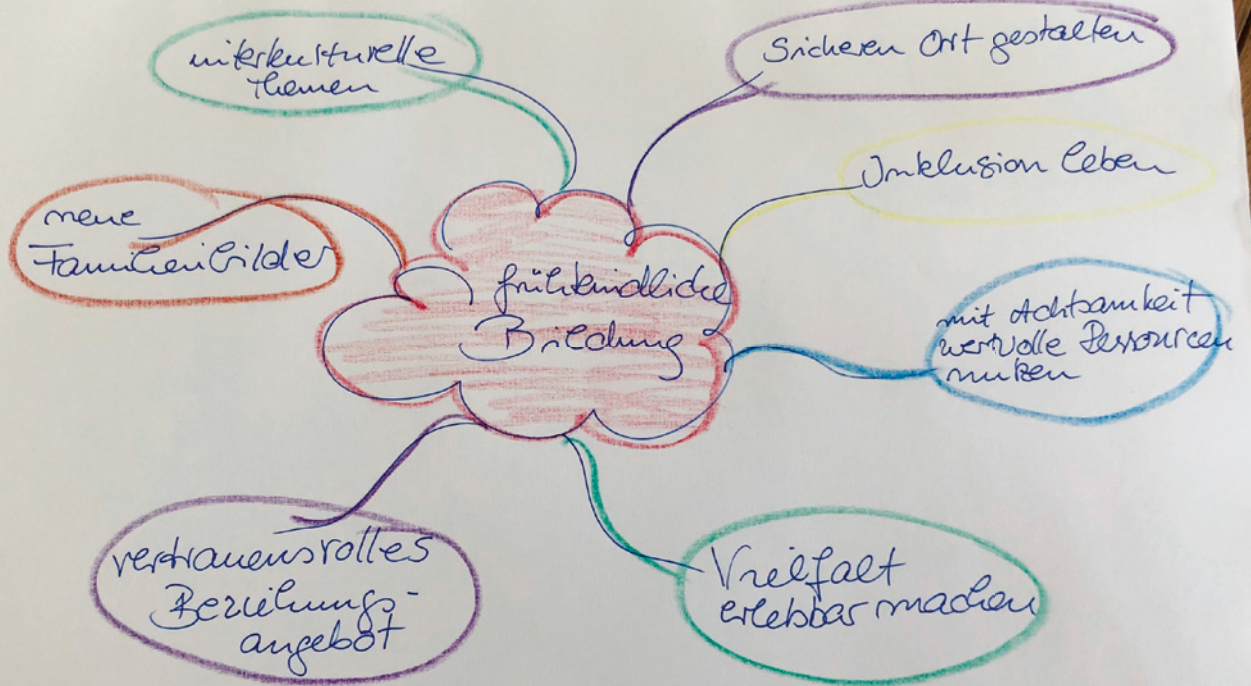 interkulturelle
Themen
Sicheren Ort gestalten
Inklusion leben
neue
Familienbilder
frühkindliche
Bildung
mit Achtsamkeit
wertvolle Ressourcen
nutzen
vertrauensvolles
Beziehungs-
angebot
Vielfalt
erlebbar machen